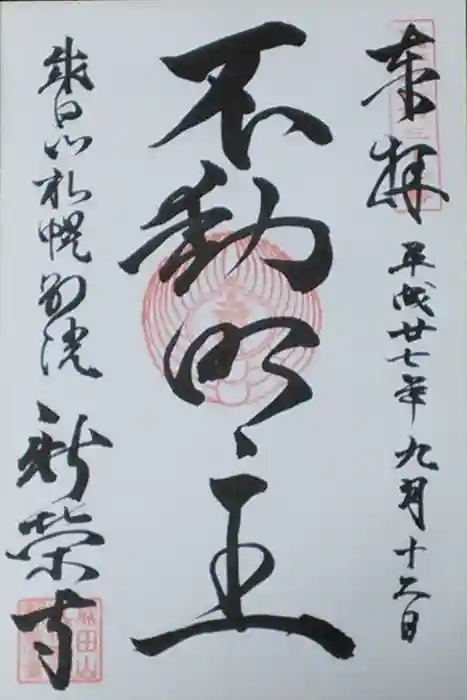 奉拝
平成廿七年九月十六日
不動明王
成田山札幌別院
新栄寺